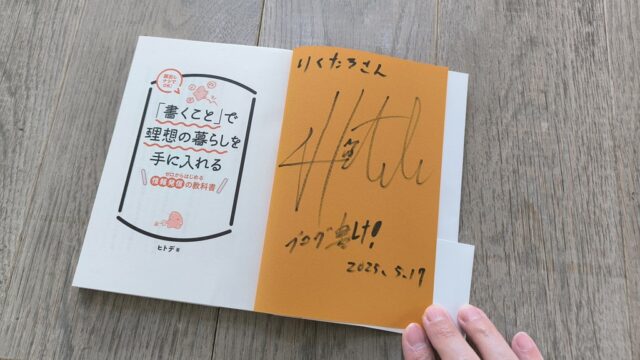 顔出し
ナシで
OK!
「書くこと」で
理想の暮らしを
手に入れる
ゼロからはじめる
情報発信の教科書
ヒトデ 著
りくたろさん
ブログ書け!
2025.5.17